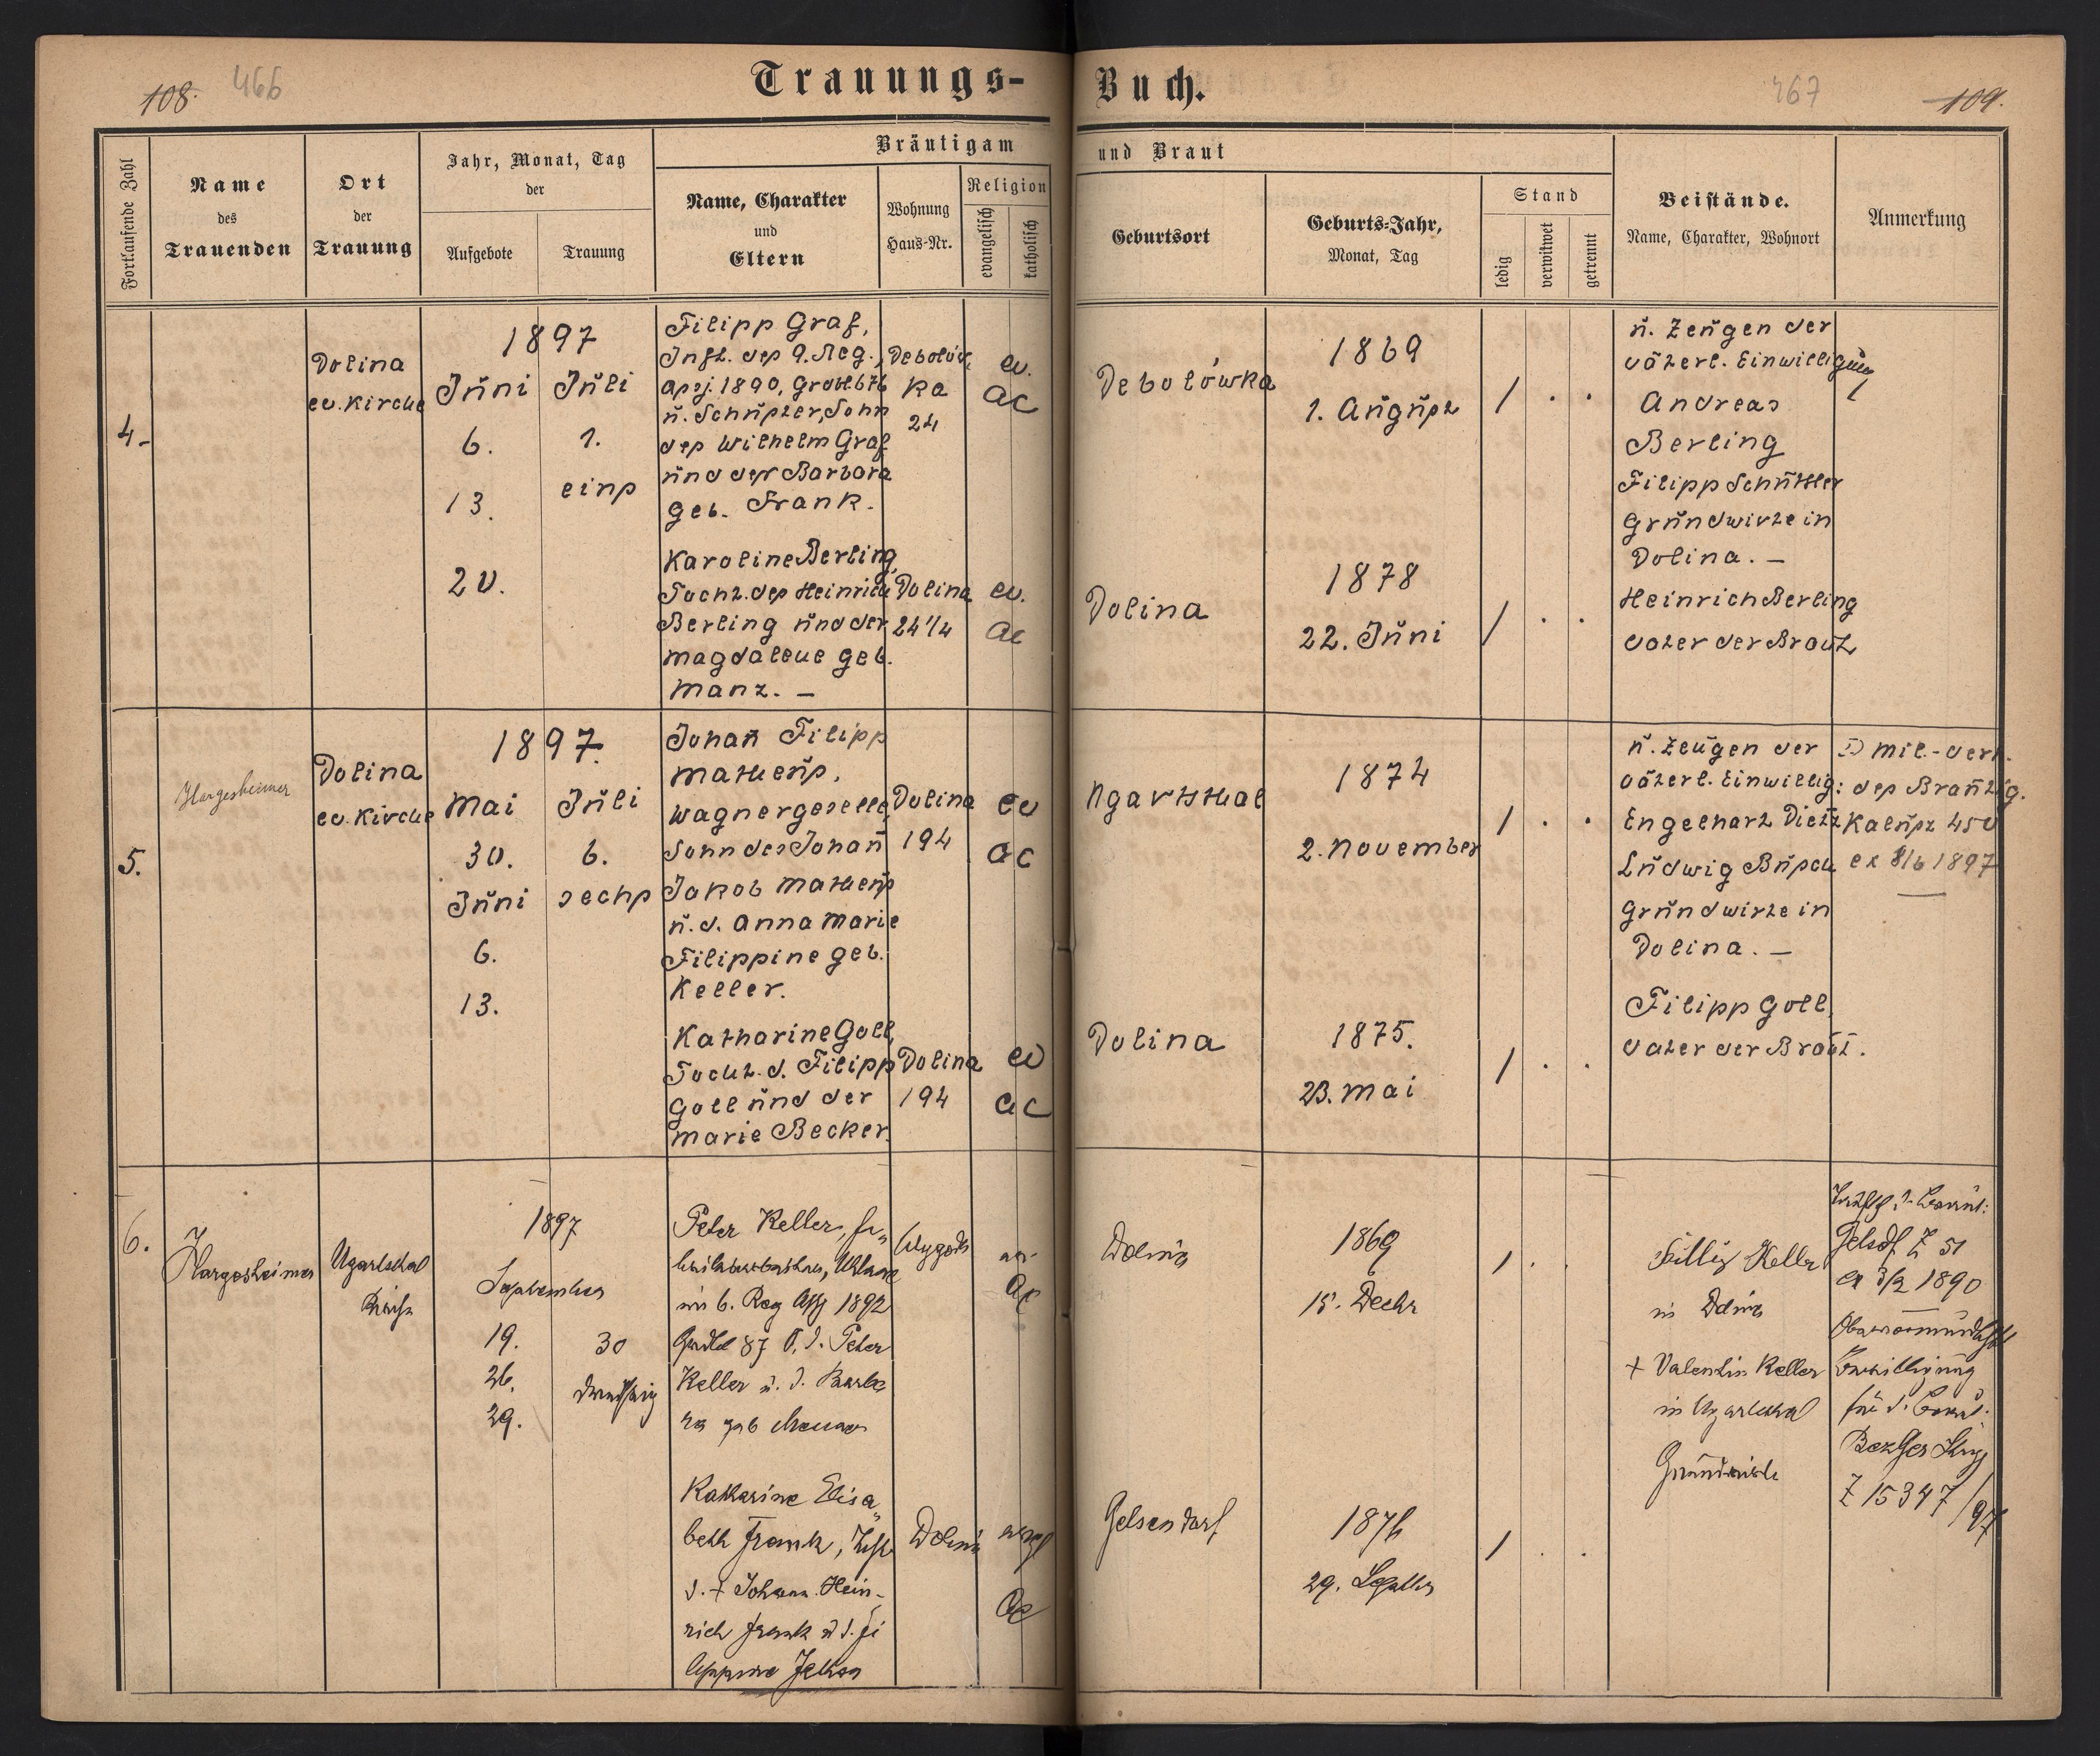 108. 466
Trauungs-
Buch.
467 109.
Fortlaufende Zahl
Name
des
Trauenden
Ort
der
Trauung
Jahr, Monat, Tag
der
Aufgebote
Trauung
Bräutigam
und Braut
Name, Charakter
und
Eltern
Wohnung
Haus-Nr.
Religion
evangelisch
katholisch
Geburtsort
Geburts-Jahr,
Monat, Tag
Stand
ledig
verwitwet
getrennt
Beistände.
Name, Charakter, Wohnort
Anmerkung
4.
Dolina
ev. Kirche
1897
Juni
6.
13.
20.
Juli
1.
eins
Filipp Graf,
Inft. des 9. Reg.,
Aßj. 1890, Grdbl 676
u. Schuster, Sohn
des Wilhelm Graf
und der Barbara
geb. Frank.
Debolów
ka
24
ev.
AC
Debolówka
1869
1. August
/ . .
u. Zeugen der
väterl. Einwilligung
Andreas
Berling
Filipp Schüttler
Grundwirte in
Dolina. –
Karoline Berling,
Tocht. des Heinrich
Berling und der
Magdalene geb.
Manz. –
Dolina
24 1/4
ev.
AC
Dolina
1878
22. Juni
/ . .
Heinrich Berling
Vater der Braut
5.
Hargesheimer
Dolina
ev. Kirche
1897.
Mai
30.
Juni
6.
13.
Juli
6.
sechs
Johañ Filipp
Matheus,
Wagnergeselle,
Sohn des Johañ
Jakob Matheus
u. d. Anna Marie
Filippine geb.
Keller.
Dolina
194
ev
AC
Ugartsthal
1874
2. November
/ . .
u. Zeugen der
väterl. Einwillig:
Engelhart Dietz
Ludwig Busch
Grundwirte in
Dolina. –
mil.-
des Bräutig.
Kalusz 450
ex 8/6 1897
Katharine Goll,
Tocht. d. Filipp
Goll und der
Marie Becker.
Dolina
194
ev
AC
Dolina
1875.
23. Mai
/ . .
Filipp Goll,
Vater der Braut.
6.
J
Hargesheimer
Ugartsthal
Kirche
1897
September
19.
26.
29.
30
dreißig
Peter Keller,
Uhlane
im 6. Reg Aßj 1892
Grdbl 87 S. d. Peter
Keller u. d. Barba
ra geb
Wygoda
AC
Dolina
1869
15. Decbr
/ . .
Fillip Keller
in Dolina
+ Valentin Keller
in Ugartsthal
Grundwirte
Gelsdf. Z 51
ex 3/2 1890
Obervormundschftl
Bewilligung
für d. Braut:
BezGer Stryj
Z 15347/97
Katharine Elisa
beth Frank, Tcht
d. + Johann Hein-
rich Frank u d. Fi
lippine
Dolina
evgl
AC
Gelsendorf
1876
29. Septbr
/ . .